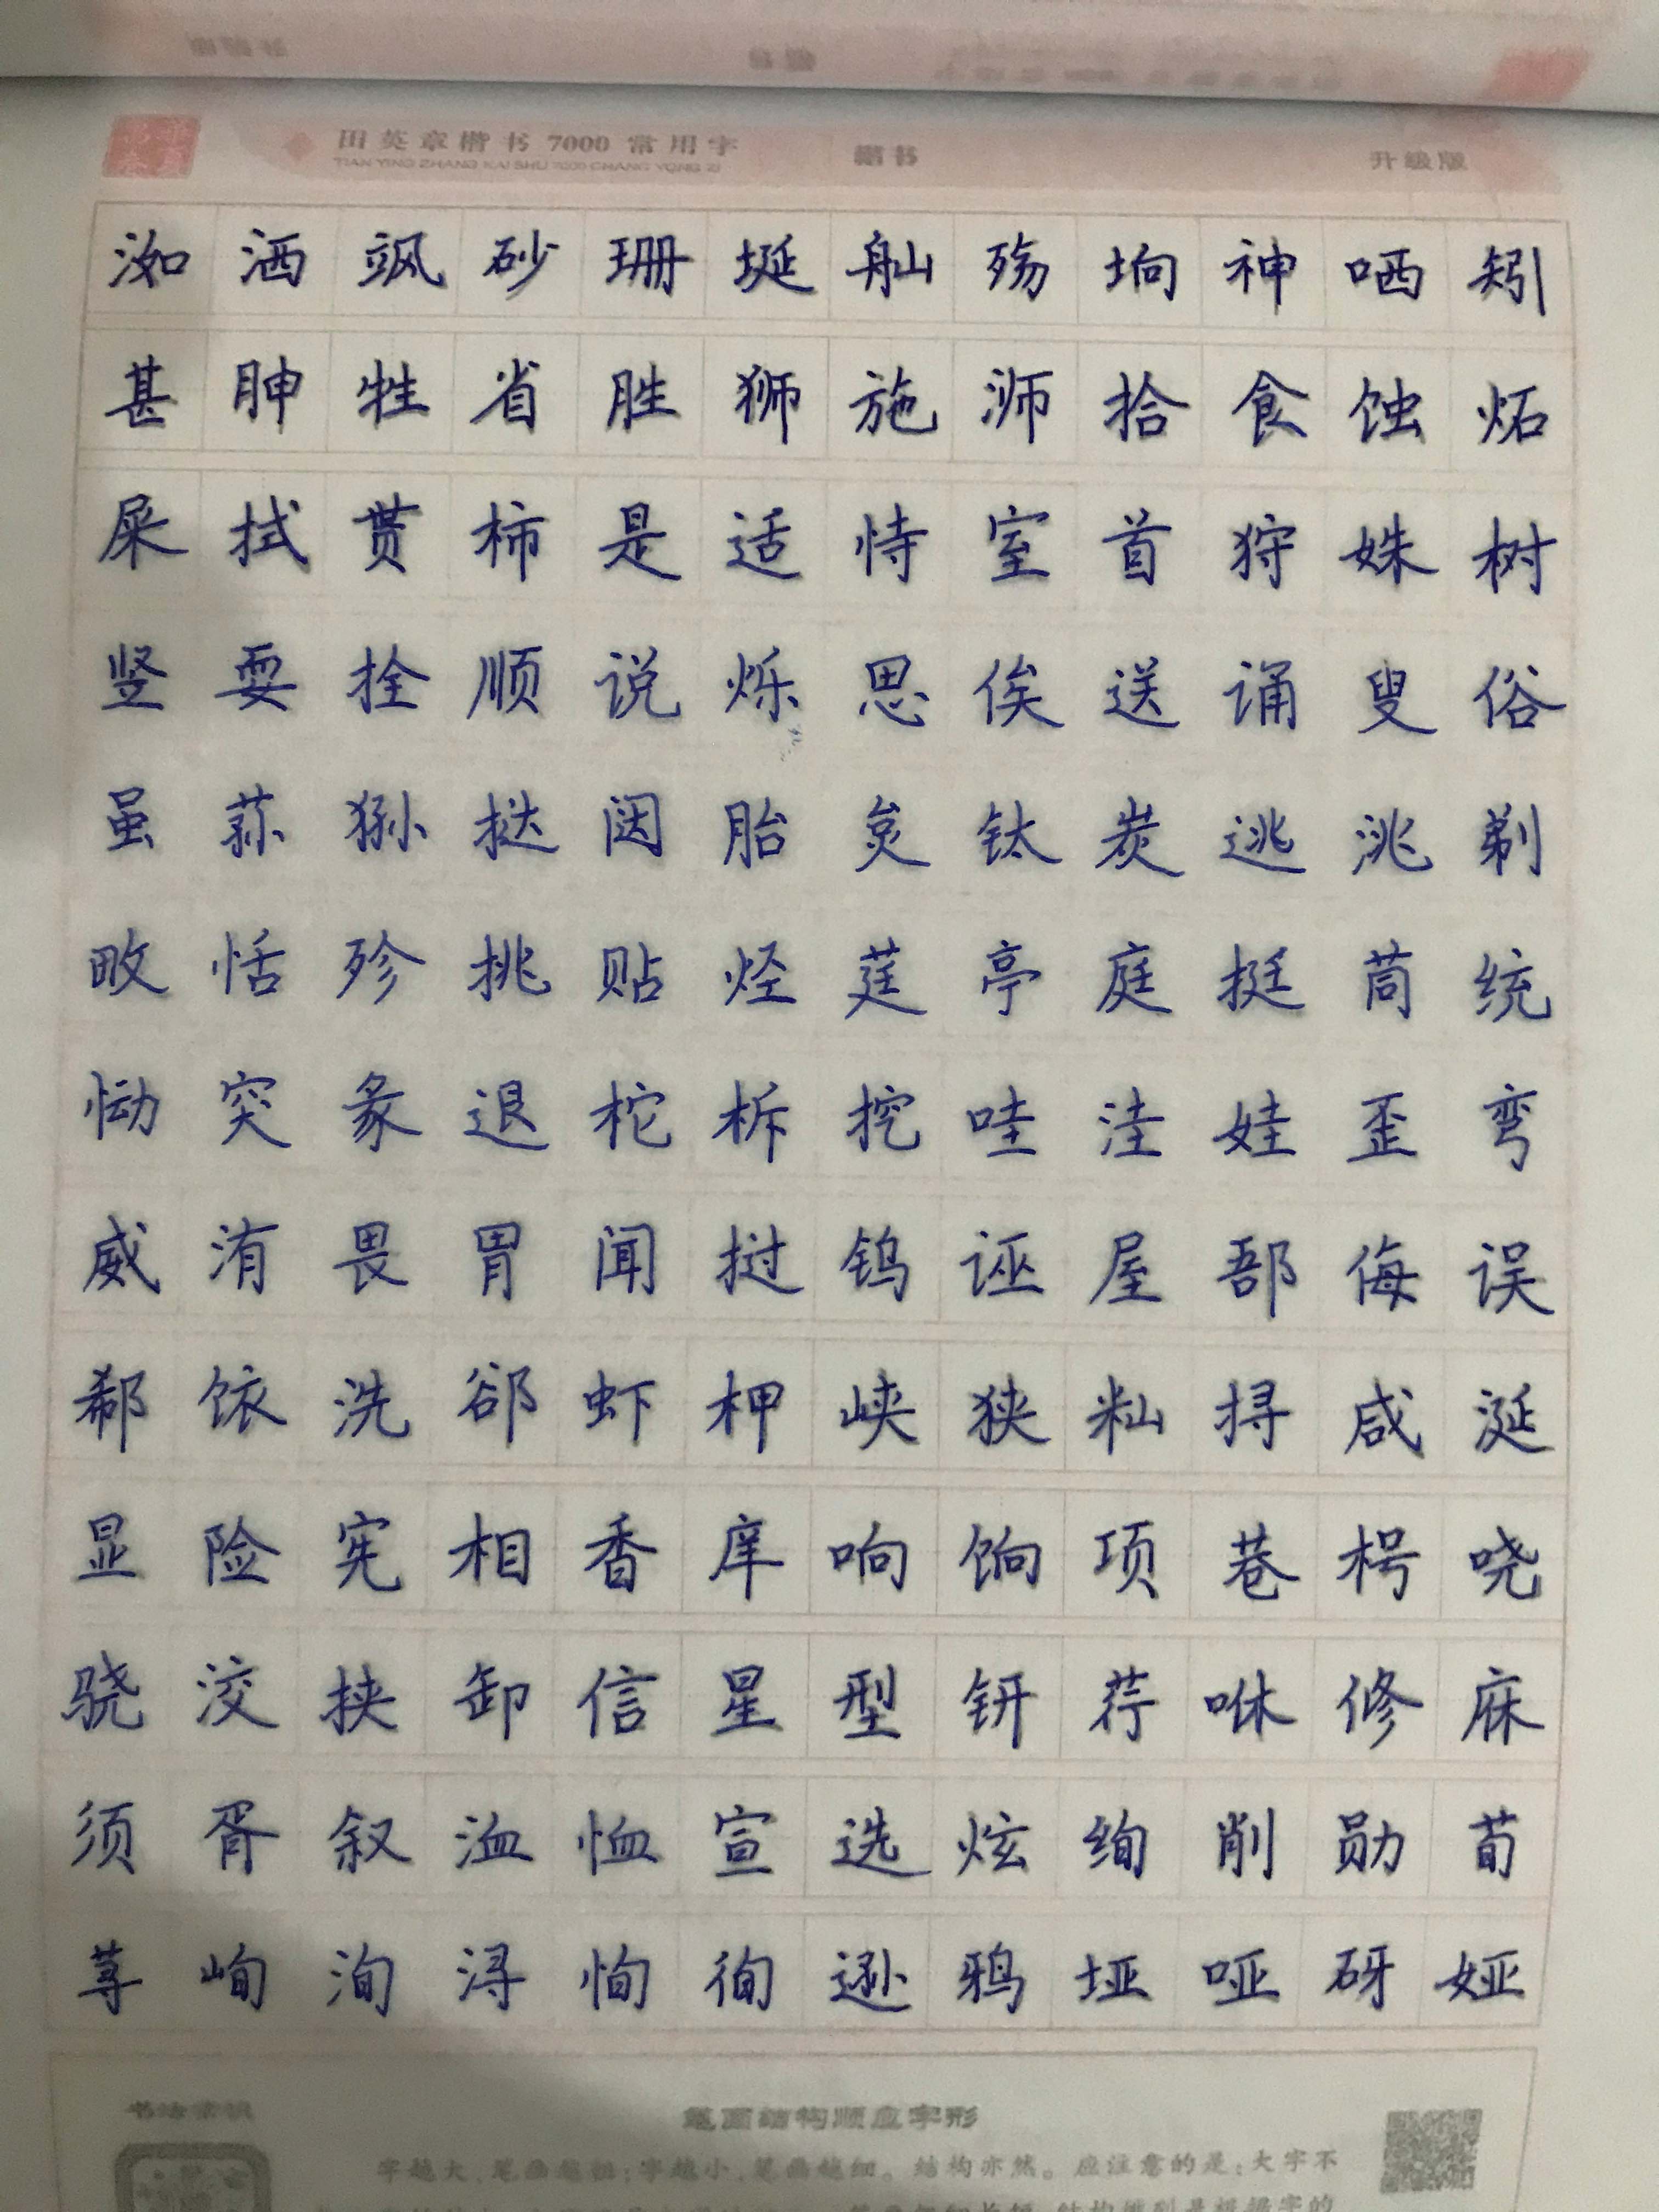 田英章楷书 7000 常用字 楷书 升级版
TIAN YING ZHANG KAI SHU 7000 CHANG YONG ZI
洳 洒 飒 砂 珊 埏 舢 殇 垧 神 哂 矧
甚 胂 牲 省 胜 狮 施 浉 拾 食 蚀 炻
屎 拭 贳 柿 是 适 恃 室 首 狩 姝 树
竖 耍 拴 顺 说 烁 思 俟 送 诵 叟 俗
虽 荪 狲 挞 闼 胎 炱 钛 炭 逃 洮 剃
畋 恬 殄 挑 贴 烃 莛 亭 庭 挺 茼 统
恸 突 彖 退 柁 柝 挖 哇 洼 娃 歪 弯
威 洧 畏 胃 闻 挝 钨 诬 屋 郚 侮 误
郗 饻 洗 郤 虾 柙 峡 狭 籼 挦 咸 涎
显 险 宪 相 香 庠 响 饷 项 巷 枵 哓
骁 洨 挟 卸 信 星 型 钘 荇 咻 修 庥
须 胥 叙 洫 恤 宣 选 炫 绚 削 勋 荀
荨 峋 洵 浔 恂 徇 逊 鸦 垭 哑 砑 娅
书法常识
笔画结构顺应字形
字越大,笔画越粗;字越小,笔画越细。结构亦然。应注意的是:大字不